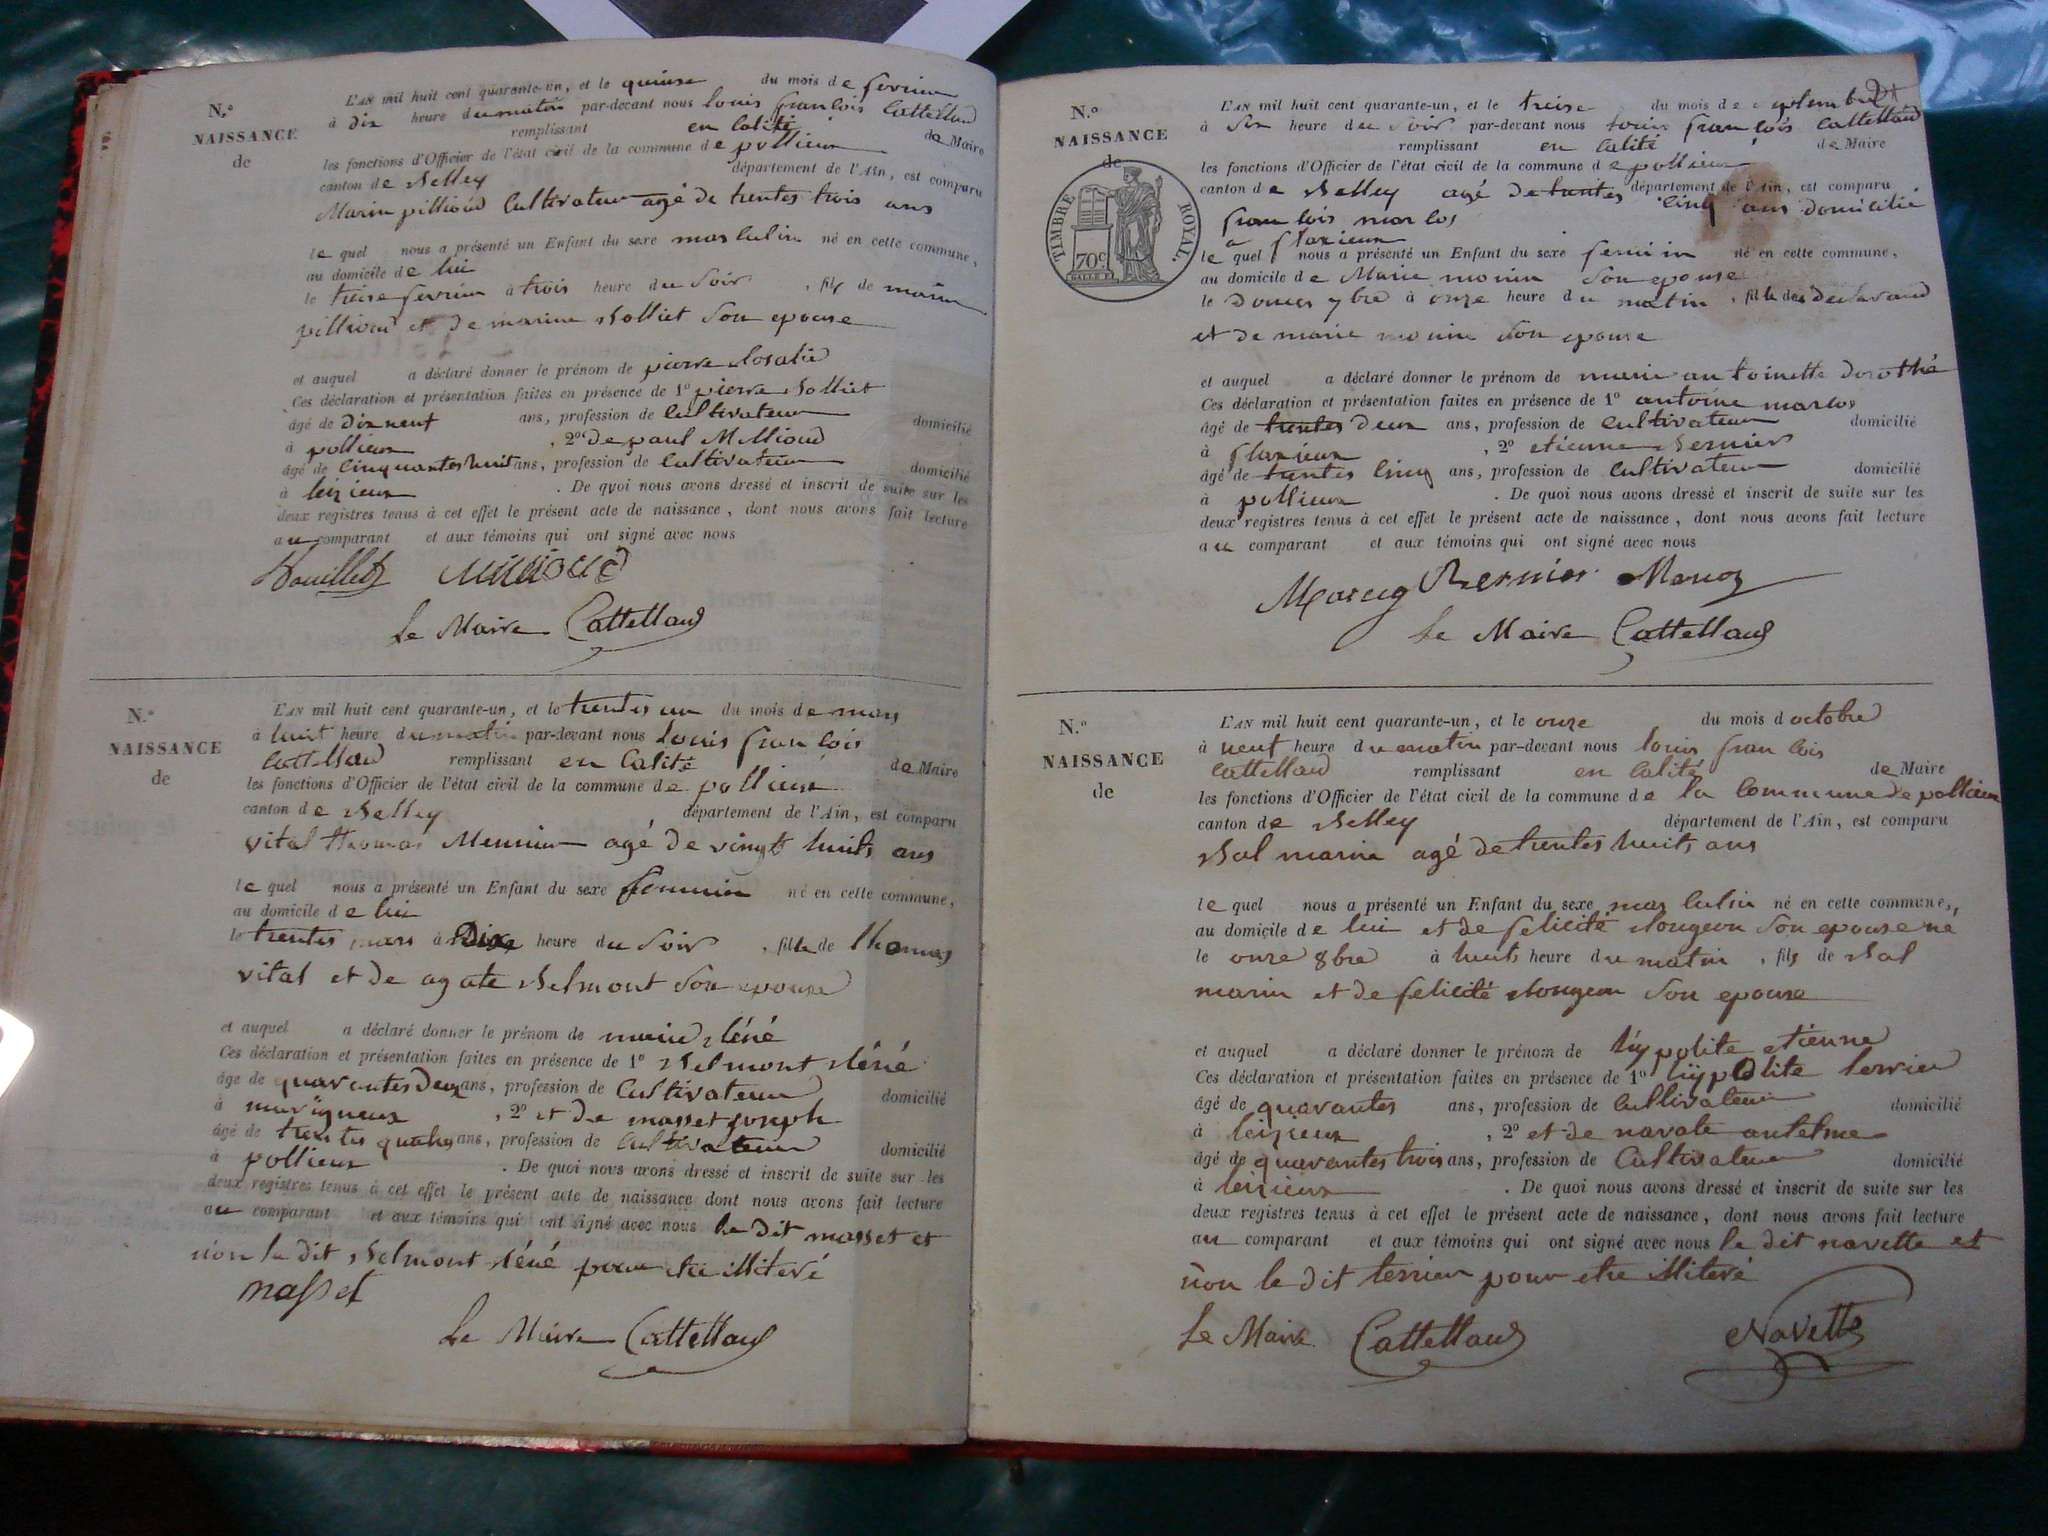 N.o
NAISSANCE
de
L'AN mil huit cent quarante-un, et le quinse du mois de fevrier
à dix heure du matin par-devant nous louis francois Cattelland
remplissant en Calité de Maire
les fonctions d'Officier de l'état civil de la commune de pollieux
canton de Belley département de l'Ain, est comparu
Marin pillioud Cultivateur agé de trentes trois ans
le quel nous a présenté un Enfant du sexe masculin né en cette commune,
au domicile de lui
le treise fevrier à trois heure du Soir, fils de marin
pillioud et de marine Bolliet Son epouse
et auquel a déclaré donner le prénom de pierre
Ces déclaration et présentation faites en présence de 1º pierre Bolliet
âgé de dix neuf ans, profession de Cultivateur domicilié
à pollieux, 2º de paul Millioud
âgé de Cinquantes huit ans, profession de Cultivateur domicilié
à leizieux. De quoi nous avons dressé et inscrit de suite sur les
deux registres tenus à cet effet le présent acte de naissance, dont nous avons fait lecture
au comparant et aux témoins qui ont signé avec nous
Le Maire Cattelland
N.o
NAISSANCE
de
L'AN mil huit cent quarante-un, et le trentes un du mois de mars
à huit heure du matin par-devant nous louis francois
Cattelland remplissant en Calité de Maire
les fonctions d'Officier de l'état civil de la commune de pollieux
canton de Belley département de l'Ain, est comparu
vital thomas Meunier agé de vingt huits ans
le quel nous a présenté un Enfant du sexe feminin né en cette commune,
au domicile de lui
le trentes mars à Dix heure du Soir, fille de thomas
vital et de agate Belmont Son epouse
et auquel a déclaré donner le prénom de marie Réné
Ces déclaration et présentation faites en présence de 1º Belmont Réné
âgé de quarantes Deux ans, profession de Cultivateur domicilié
à, 2º et de masset joseph
âgé de trentes quatres ans, profession de Cultivateur domicilié
à pollieux. De quoi nous avons dressé et inscrit de suite sur les
deux registres tenus à cet effet le présent acte de naissance dont nous avons fait lecture
au comparant et aux témoins qui ont signé avec nous le dit masset et
non le dit Belmont Réné pour etre illiteré
masset
Le Maire Cattelland
21
N.o
NAISSANCE
de
TIMBRE ROYAL.
70c
L'AN mil huit cent quarante-un, et le treise du mois de septembre
à six heure du Soir par-devant nous louis francois Cattelland
remplissant en Calité de Maire
les fonctions d'Officier de l'état civil de la commune de pollieux
canton de Belley agé de trentes Cinq ans domicilié département de l'Ain, est comparu
francois marcos
a flaxieux
le quel nous a présenté un Enfant du sexe feminin né en cette commune,
au domicile de Marie monin Son epouse
le Douses 7bre à onze heure du matin, fille des declarand
et de marie monin Son epouse
et auquel a déclaré donner le prénom de marie antoinette dorothé
Ces déclaration et présentation faites en présence de 1º antoine marcos
âgé de trentes deux ans, profession de Cultivateur domicilié
à flaxieux, 2º etienne Bernier
âgé de trentes Cinq ans, profession de Cultivateur domicilié
à pollieux. De quoi nous avons dressé et inscrit de suite sur les
deux registres tenus à cet effet le présent acte de naissance, dont nous avons fait lecture
au comparant et aux témoins qui ont signé avec nous
Bernier
Le Maire Cattelland
N.o
NAISSANCE
de
L'AN mil huit cent quarante-un, et le onze du mois d octobre
à neuf heure du matin par-devant nous louis francois
Cattelland remplissant en Calité de Maire
les fonctions d'Officier de l'état civil de la commune de la Commune de pollieux
canton de Belley département de l'Ain, est comparu
Bal marin agé de trentes huits ans
le quel nous a présenté un Enfant du sexe masculin né en cette commune,
au domicile de lui et de felicité Bongeon Son epouse ne
le onze 8bre à huits heure du matin, fils de Bal
marin et de felicité Bongeon Son epouse
et auquel a déclaré donner le prénom de hypolite etienne
Ces déclaration et présentation faites en présence de 1º hypolite terrier
âgé de quarantes ans, profession de Cultivateur domicilié
à leizieux, 2º et de navate antelme
âgé de quarantes trois ans, profession de Cultivateur domicilié
à leizieux. De quoi nous avons dressé et inscrit de suite sur les
deux registres tenus à cet effet le présent acte de naissance, dont nous avons fait lecture
au comparant et aux témoins qui ont signé avec nous le dit navette et
non le dit terrier pour etre illiteré
Le Maire Cattelland Navette